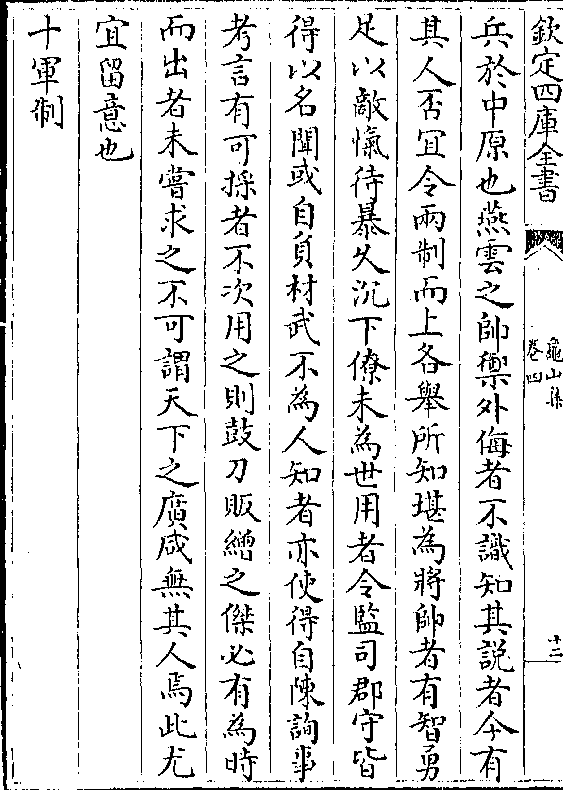 欽定四庫全書
龜山集
卷四
十二
兵於中原也燕雲之帥禦外侮者不識知其說者今有
其人否宜令兩制而上各舉所知堪為將帥者有智勇
足以敵愾待暴久沉下僚未為世用者令監司郡守皆
得以名聞或自負材武不為人知者亦使得自陳詢事
考言有可採者不次用之則鼓刀販繒之傑必有為時
而出者未嘗求之不可謂天下之廣咸無其人焉此尤
宜留意也
十軍制